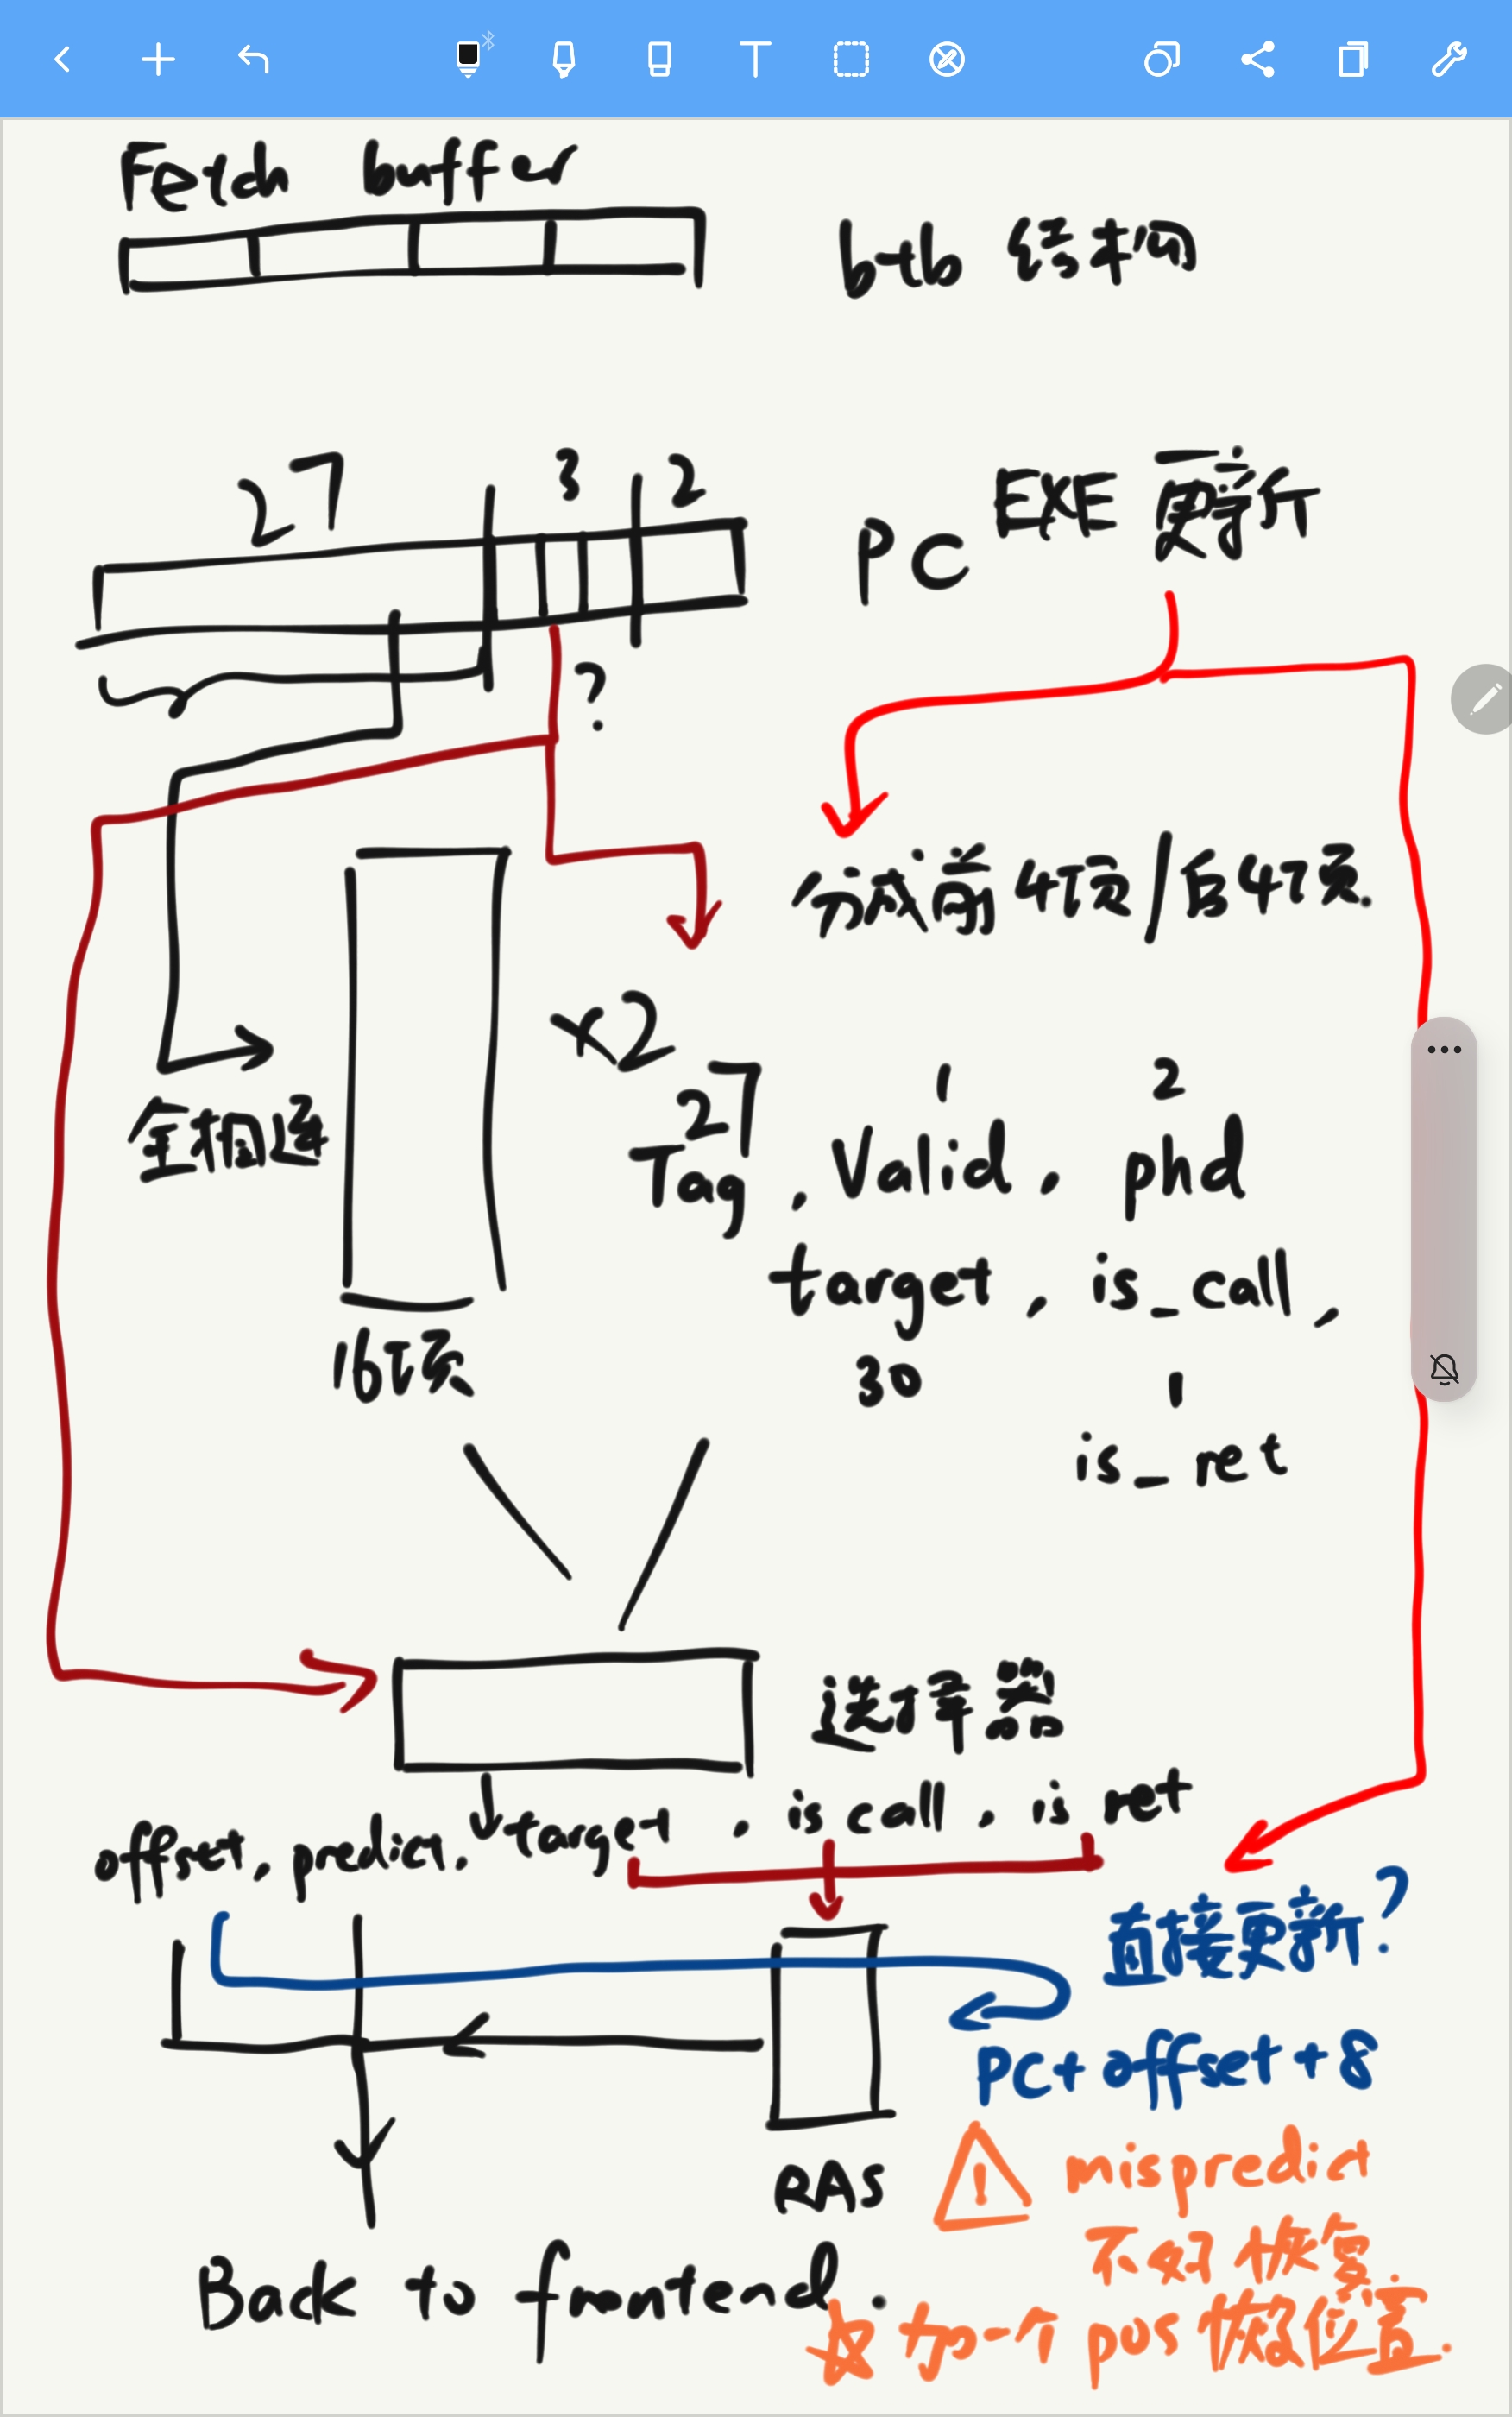 Fetch buffer
btb 结构
27 3 2
PC
EXE 更新
?
分成前4项/后4项.
×2
全相连
27 1 2
Tag, Valid, phd
target, is_call,
30 1
is_ret
16项
选择器
offset, predict, target, is call, is ret
直接更新?
PC+offset+8
RAS
! mispredict
不好恢复
Back to frontend.
加一个 pos 恢复位置.